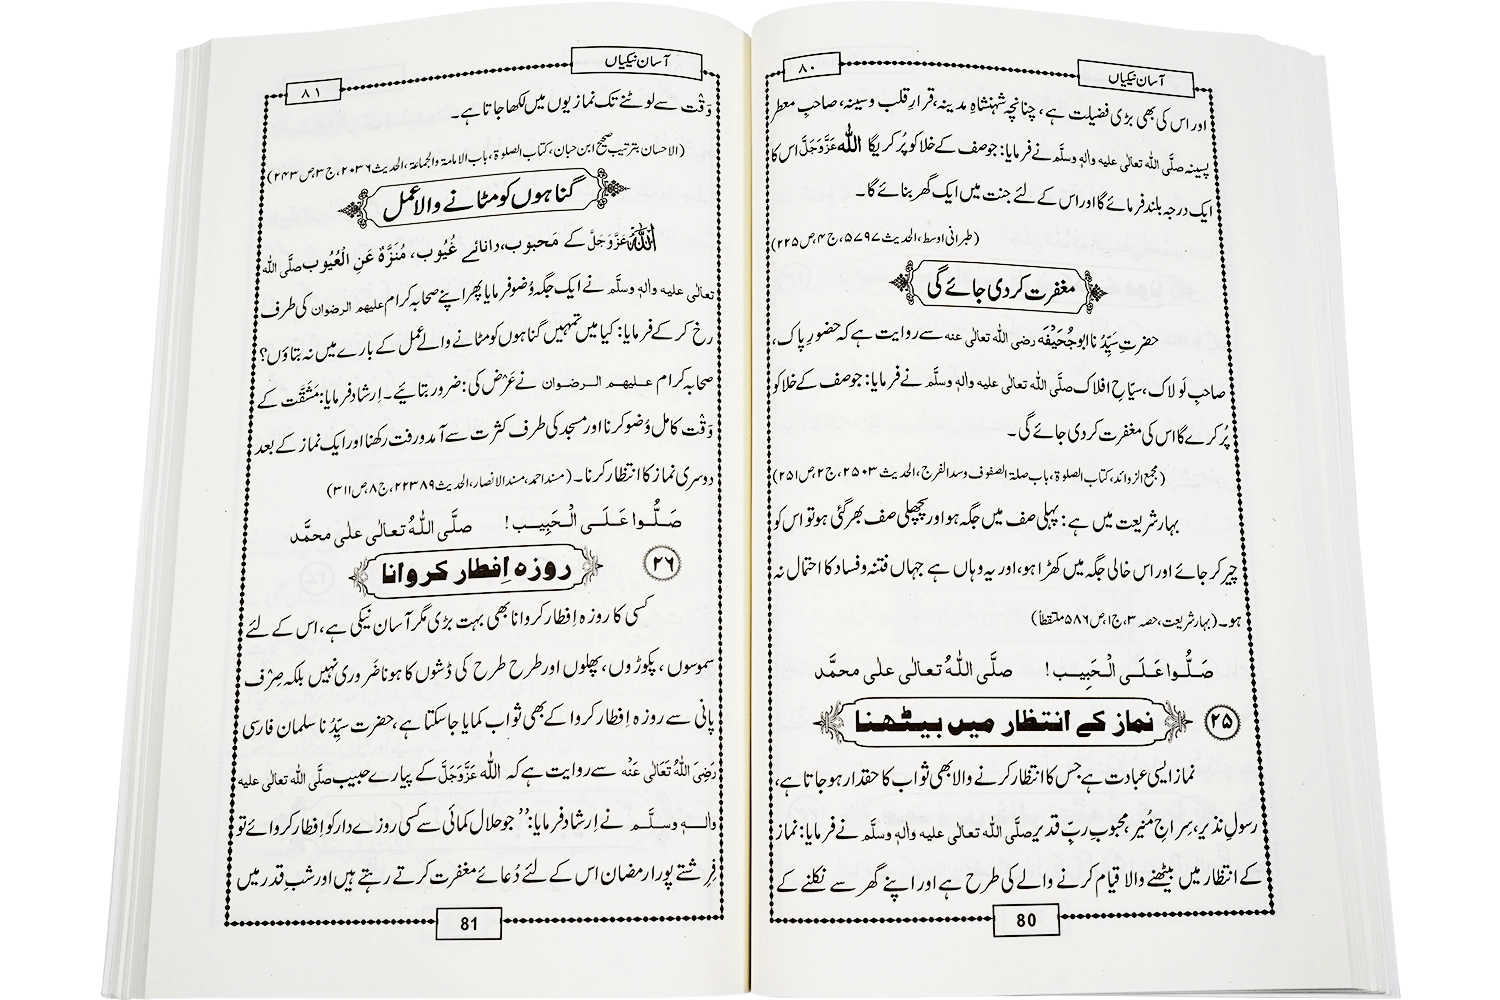 آسان نیکیاں
۸۰
اور اس کی بھی بڑی فضیلت ہے، چنانچہ شہنشاہِ مدینہ، قرارِ قلب و سینہ، صاحبِ معطر
پسینہ صلَّی اللہ تعالٰی علیہ واٰلہٖ وسلَّم نے فرمایا: جو صف کے خلا کو پُر کریگا اللہ عَزَّوَجَلَّ اس کا
ایک درجہ بلند فرمائے گا اور اس کے لئے جنت میں ایک گھر بنائے گا۔
(طبرانی اوسط، الحدیث ۵۷۹۷، ج۴، ص۲۲۵)
مغفرت کر دی جائے گی
حضرتِ سیِّدُنا ابو جُحَیْفَہ رضی اللہ تعالٰی عنہ سے روایت ہے کہ حضورِ پاک،
صاحبِ لَولاک، سیّاحِ افلاک صلَّی اللہ تعالٰی علیہ واٰلہٖ وسلَّم نے فرمایا: جو صف کے خلا کو
پُر کرے گا اس کی مغفرت کر دی جائے گی۔
(مجمع الزوائد، کتاب الصلوۃ، باب صلۃ الصفوف وسد الفرج، الحدیث ۲۵۰۳، ج۲، ص۲۵۱)
بہارِ شریعت میں ہے: پہلی صف میں جگہ ہو اور پچھلی صف بھر گئی ہو تو اس کو
چیر کر جائے اور اس خالی جگہ میں کھڑا ہو، اور یہ وہاں ہے جہاں فتنہ و فساد کا احتمال نہ
ہو۔ (بہارشریعت، حصہ ۳، ج۱، ص۵۸۶ ملتقطاً)
صَلُّوا عَلَی الْحَبِیب! صلَّی اللّٰہُ تعالٰی علٰی محمَّد
۲۵ نماز کے انتظار میں بیٹھنا
نماز ایسی عبادت ہے جس کا انتظار کرنے والا بھی ثواب کا حقدار ہوجاتا ہے،
رسولِ نذیر، سِراجِ مُنیر، محبوبِ ربِّ قدیر صلَّی اللہ تعالٰی علیہ واٰلہٖ وسلَّم نے فرمایا: نماز
کے انتظار میں بیٹھنے والا قیام کرنے والے کی طرح ہے اور اپنے گھر سے نکلنے کے
80
آسان نیکیاں
۸۱
وَقْت سے لوٹنے تک نمازیوں میں لکھا جاتا ہے۔
(الاحسان بترتیب صحیح ابن حبان، کتاب الصلوۃ، باب الامامۃ والجماعۃ، الحدیث ۲۰۳۶، ج۳، ص۲۴۳)
گناہوں کو مٹانے والا عمل
اللہ عَزَّوَجَلَّ کے مَحبوب، دانائے غُیُوب، مُنَزَّہٌ عَنِ الْعُیُوب صلَّی اللہ
تعالٰی علیہ واٰلہٖ وسلَّم نے ایک جگہ وُضو فرمایا پھر اپنے صحابہ کرام علیہم الرضوان کی طرف
رخ کر کے فرمایا: کیا میں تمہیں گناہوں کو مٹانے والے عمل کے بارے میں نہ بتاؤں؟
صحابہ کرام علیہم الرضوان نے عَرْض کی: ضرور بتائیے۔ اِرشاد فرمایا: مَشَقَّت کے
وَقْت کامل وُضو کرنا اور مسجد کی طرف کثرت سے آمد و رفت رکھنا اور ایک نماز کے بعد
دوسری نماز کا انتظار کرنا۔ (مسند احمد، مسند الانصار، الحدیث ۲۲۳۸۹، ج۸، ص۳۱۱)
صَلُّوا عَلَی الْحَبِیب! صلَّی اللّٰہُ تعالٰی علٰی محمَّد
۲۶ روزہ اِفطار کروانا
کسی کا روزہ اِفطار کروانا بھی بہت بڑی مگر آسان نیکی ہے، اس کے لئے
سموسوں، پکوڑوں، پھلوں اور طرح طرح کی ڈشوں کا ہونا ضَروری نہیں بلکہ صِرْف
پانی سے روزہ اِفطار کروا کے بھی ثواب کمایا جاسکتا ہے، حضرت سیِّدُنا سلمان فارسی
رَضِیَ اللّٰہُ تَعَالٰی عَنْہ سے روایت ہے کہ اللہ عَزَّوَجَلَّ کے پیارے حبیب صلَّی اللہ تعالٰی علیہ
واٰلہٖ وسلَّم نے اِرشاد فرمایا: ’’جو حلال کمائی سے کسی روزے دار کو اِفطار کروائے تو
فِرِشتے پورا رمضان اس کے لئے دُعائے مغفرت کرتے رہتے ہیں اور شبِ قدر میں
81